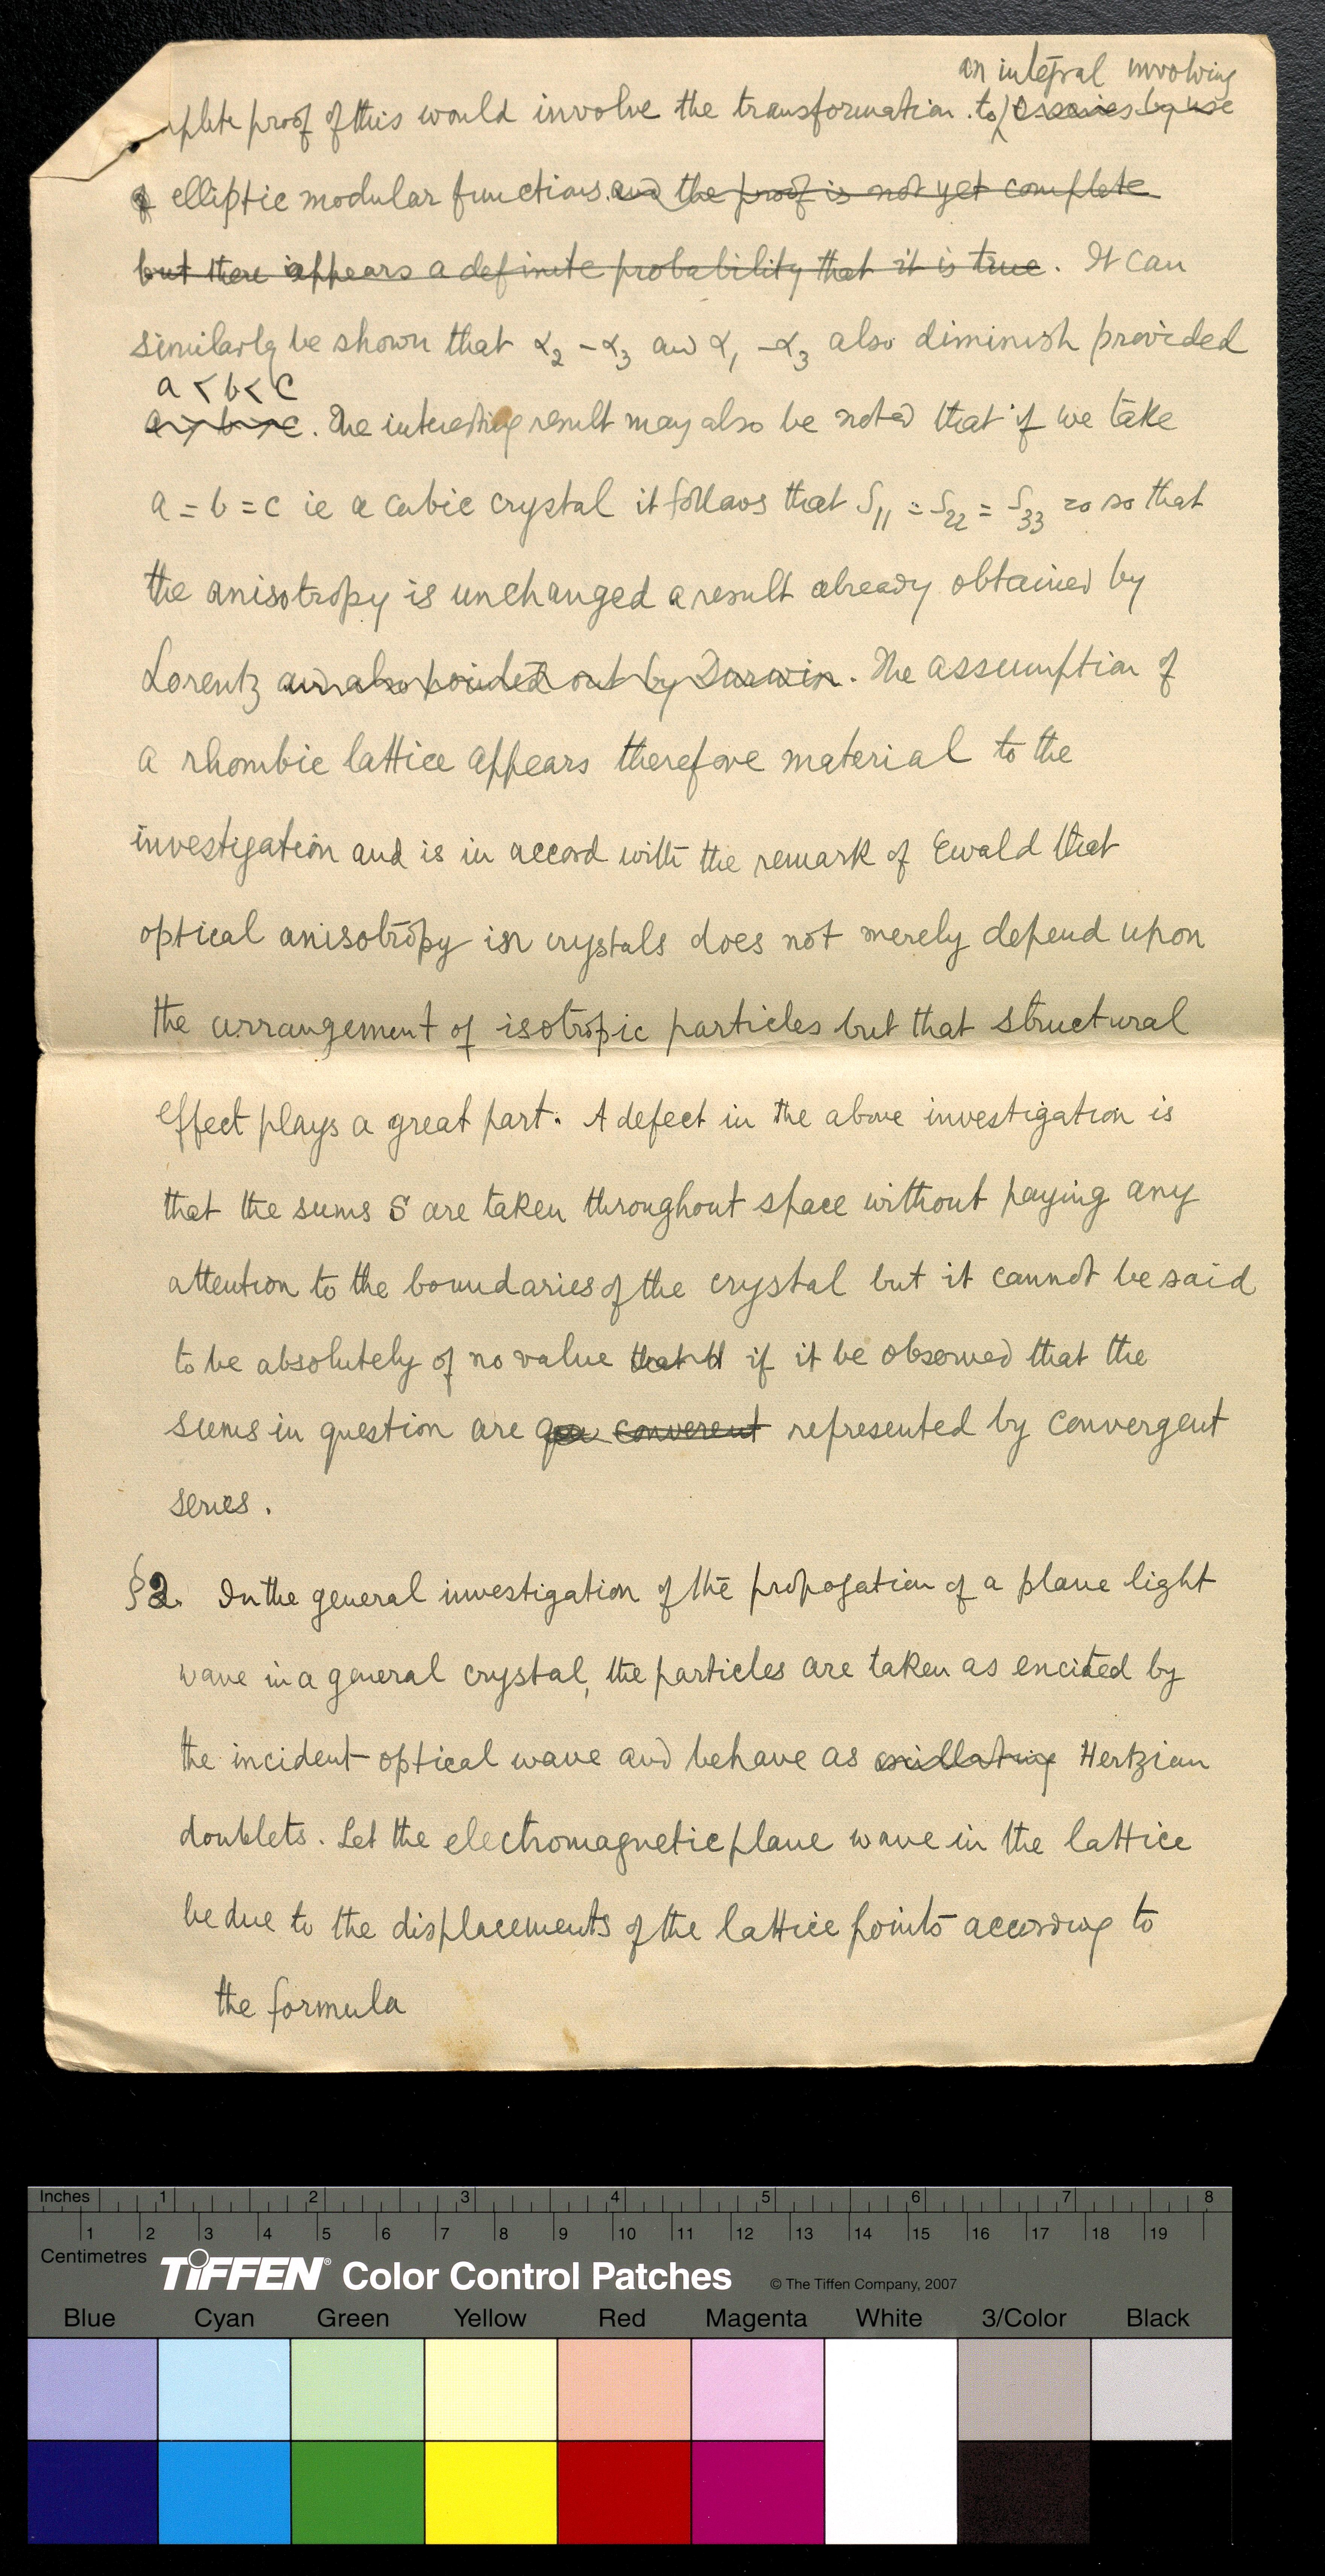 an integral involving
plete proof of this would involve the transformation to a series by use
of elliptic modular functions. and the proof is not yet complete
but there appears a definite probability that it is true. It can
similarly be shown that α₂ - α₃ and α₁ - α₃ also diminish provided
a < b < c
a > b > c. The interesting result may also be noted that if we take
a = b = c ie a cubic crystal it follows that S₁₁ = S₂₂ = S₃₃ = 0 so that
the anisotropy is unchanged a result already obtained by
Lorentz and also pointed out by Darwin. The assumption of
a rhombic lattice appears therefore material to the
investigation and is in accord with the remark of Ewald that
optical anisotropy in crystals does not merely depend upon
the arrangement of isotropic particles but that structural
effect plays a great part. A defect in the above investigation is
that the sums S are taken throughout space without paying any
attention to the boundaries of the crystal but it cannot be said
to be absolutely of no value that if it be observed that the
sums in question are converent represented by convergent
series.
§2. In the general investigation of the propogation of a plane light
wave in a general crystal, the particles are taken as encited by
the incident optical wave and behave as oscillating Hertzian
doublets. Let the electromagnetic plane wave in the lattice
be due to the displacements of the lattice points according to
the formula
Inches 1 2 3 4 5 6 7 8
1 2 3 4 5 6 7 8 9 10 11 12 13 14 15 16 17 18 19
Centimetres
TIFFEN® Color Control Patches © The Tiffen Company, 2007
Blue Cyan Green Yellow Red Magenta White 3/Color Black